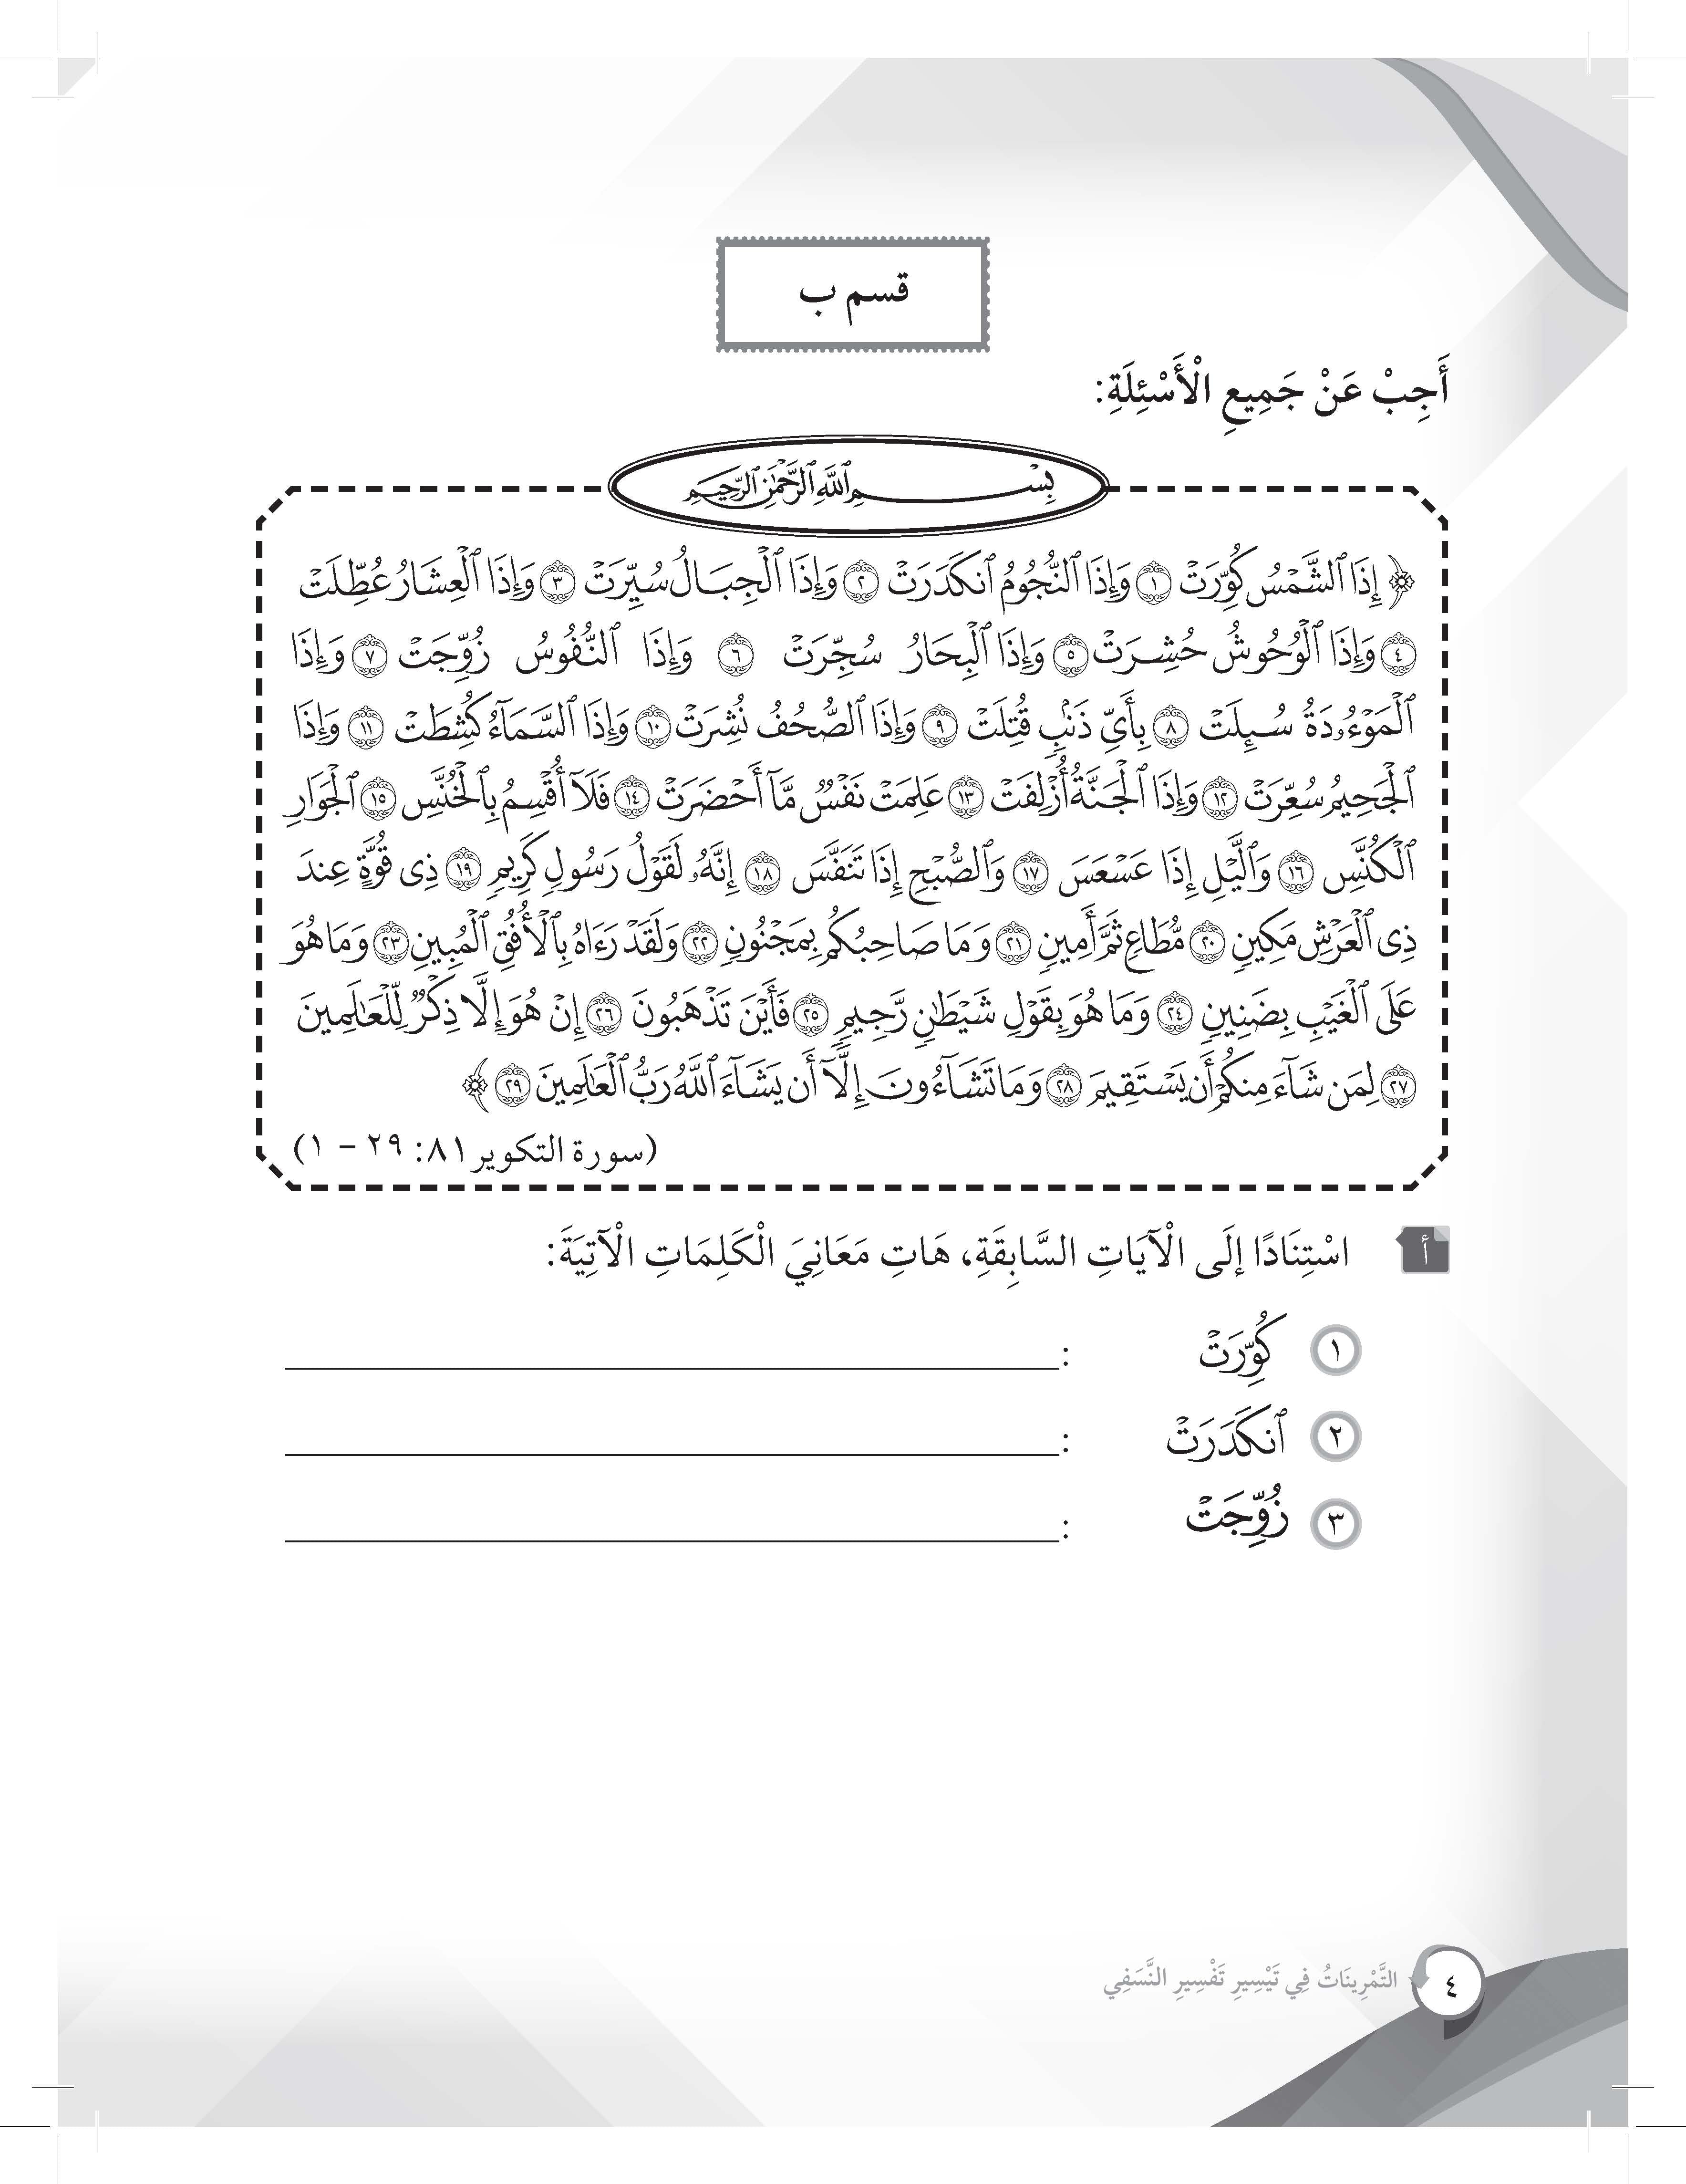 قسم ب
أَجِبْ عَنْ جَمِيعِ الْأَسْئِلَةِ:
بِسْمِ ٱللَّهِ ٱلرَّحْمَٰنِ ٱلرَّحِيمِ
﴿ إِذَا ٱلشَّمْسُ كُوِّرَتْ ١ وَإِذَا ٱلنُّجُومُ ٱنكَدَرَتْ ٢ وَإِذَا ٱلْجِبَالُ سُيِّرَتْ ٣ وَإِذَا ٱلْعِشَارُ عُطِّلَتْ
٤ وَإِذَا ٱلْوُحُوشُ حُشِرَتْ ٥ وَإِذَا ٱلْبِحَارُ سُجِّرَتْ ٦ وَإِذَا ٱلنُّفُوسُ زُوِّجَتْ ٧ وَإِذَا
ٱلْمَوْءُۥدَةُ سُئِلَتْ ٨ بِأَيِّ ذَنۢبٍ قُتِلَتْ ٩ وَإِذَا ٱلصُّحُفُ نُشِرَتْ ١٠ وَإِذَا ٱلسَّمَآءُ كُشِطَتْ ١١ وَإِذَا
ٱلْجَحِيمُ سُعِّرَتْ ١٢ وَإِذَا ٱلْجَنَّةُ أُزْلِفَتْ ١٣ عَلِمَتْ نَفْسٌ مَّآ أَحْضَرَتْ ١٤ فَلَآ أُقْسِمُ بِٱلْخُنَّسِ ١٥ ٱلْجَوَارِ
ٱلْكُنَّسِ ١٦ وَٱلَّيْلِ إِذَا عَسْعَسَ ١٧ وَٱلصُّبْحِ إِذَا تَنَفَّسَ ١٨ إِنَّهُۥ لَقَوْلُ رَسُولٍ كَرِيمٍ ١٩ ذِى قُوَّةٍ عِندَ
ذِى ٱلْعَرْشِ مَكِينٍ ٢٠ مُّطَاعٍ ثَمَّ أَمِينٍ ٢١ وَمَا صَاحِبُكُم بِمَجْنُونٍ ٢٢ وَلَقَدْ رَءَاهُ بِٱلْأُفُقِ ٱلْمُبِينِ ٢٣ وَمَا هُوَ
عَلَى ٱلْغَيْبِ بِضَنِينٍ ٢٤ وَمَا هُوَ بِقَوْلِ شَيْطَٰنٍ رَّجِيمٍ ٢٥ فَأَيْنَ تَذْهَبُونَ ٢٦ إِنْ هُوَ إِلَّا ذِكْرٌ لِّلْعَٰلَمِينَ
٢٧ لِمَن شَآءَ مِنكُمْ أَن يَسْتَقِيمَ ٢٨ وَمَا تَشَآءُونَ إِلَّآ أَن يَشَآءَ ٱللَّهُ رَبُّ ٱلْعَٰلَمِينَ ٢٩ ﴾
(سورة التكوير ٨١: ٢٩ – ١)
أ اسْتِنَادًا إلَى الْآيَاتِ السَّابِقَةِ، هَاتِ مَعَانِيَ الْكَلِمَاتِ الْآتِيَةَ:
١ كُوِّرَتْ :
٢ ٱنكَدَرَتْ :
٣ زُوِّجَتْ :
٤ التَّمْرِينَاتُ فِي تَيْسِيرِ تَفْسِيرِ النَّسَفِي